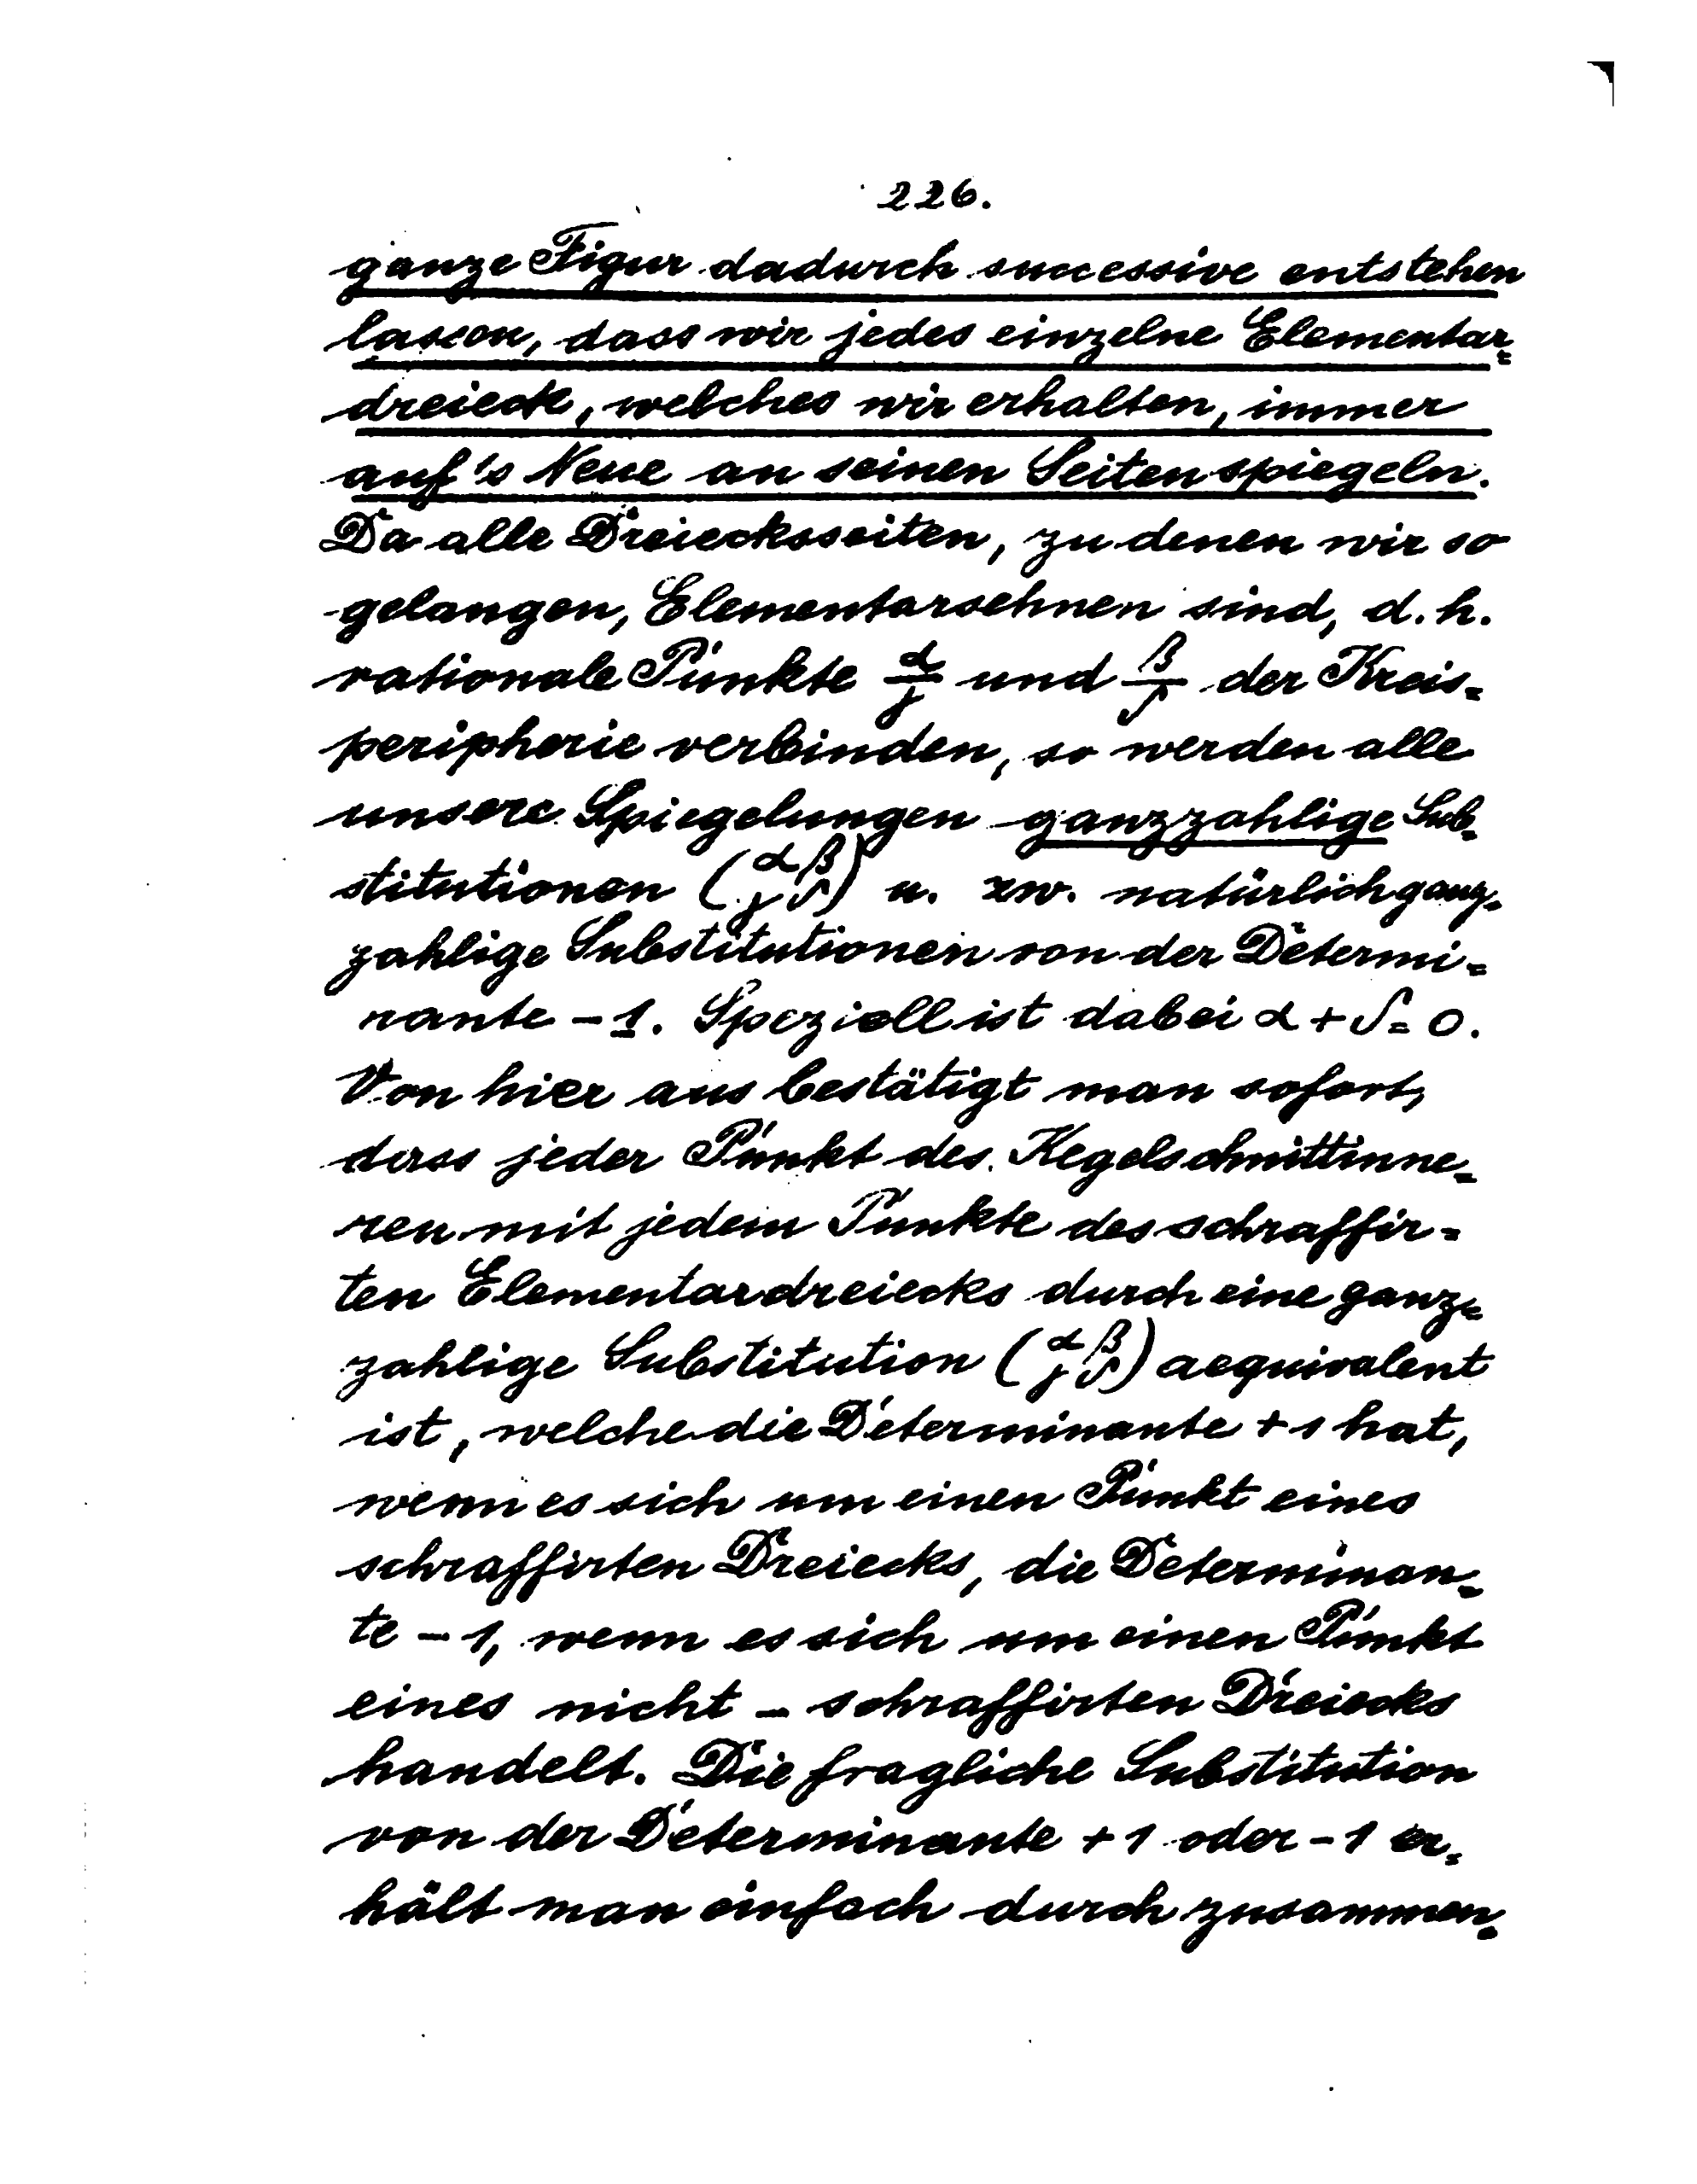 226.
ganze Figur dadurch successive entstehen
lassen, dass wir jedes einzelne Elementar=
dreieck, welches wir erhalten, immer
auf's Neue an seinen Seiten spiegeln.
Da alle Dreiecksseiten, zu denen wir so
gelangen, Elementarsehnen sind, d. h.
rationale Punkte α/γ und β/δ der Kreis=
peripherie verbinden, so werden alle
unsere Spiegelungen ganzzahlige Sub=
stitutionen (α β / γ δ) u. zw. natürlich ganz=
zahlige Substitutionen von der Determi=
nante -1. Speziell ist dabei α + δ = 0.
Von hier aus bestätigt man sofort,
dass jeder Punkt des Kegelschnittinne=
ren mit jedem Punkte des schraffir=
ten Elementardreiecks durch eine ganz=
zahlige Substitution (α β / γ δ) aequivalent
ist, welche die Determinante +1 hat,
wenn es sich um einen Punkt eines
schraffirten Dreiecks, die Determinan=
te -1, wenn es sich um einen Punkt
eines nicht - schraffirten Dreiecks
handelt. Die fragliche Substitution
von der Determinante +1 oder -1 er=
hält man einfach durch zusammen=